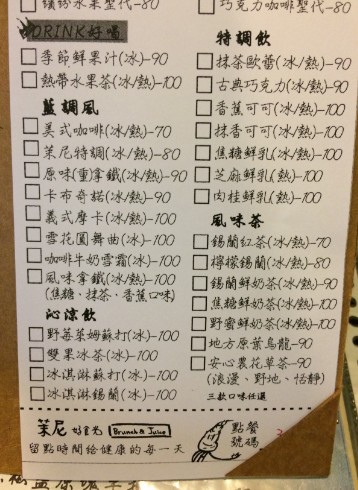 繽紛水果聖代-80
DRINK好喝
季節鮮果汁(冰)-90
熱帶水果茶(冰/熱)-100
藍調風
美式咖啡(冰/熱)-70
茉尼特調(冰/熱)-80
原味(重)拿鐵(冰/熱)-90
卡布奇諾(冰/熱)-90
義式摩卡(冰/熱)-100
雪花圓舞曲(冰)-100
咖啡牛奶雪霜(冰)-100
風味拿鐵(冰/熱)-100
(焦糖、抹茶、香蕉口味)
沁涼飲
野莓萊姆蘇打(冰)-100
雙果冰茶(冰)-100
冰淇淋蘇打(冰)-100
冰淇淋錫蘭(冰)-100
巧克力咖啡聖代-80
特調飲
抹茶歐蕾(冰/熱)-90
古典巧克力(冰/熱)-90
香蕉可可(冰/熱)-100
抹香可可(冰/熱)-100
焦糖鮮乳(冰/熱)-100
芝麻鮮乳(冰/熱)-100
肉桂鮮乳(熱)-100
風味茶
錫蘭紅茶(冰/熱)-70
檸檬錫蘭(冰/熱)-80
錫蘭鮮奶茶(冰/熱)-90
焦糖鮮奶茶(冰/熱)-100
野蜜鮮奶茶(冰/熱)-100
地方原葉烏龍-90
安心農花草茶-90
(浪漫、野地、恬靜)
三款口味任選
茉尼 好食光 Brunch & Juice
留點時間給健康的每一天
點餐
號碼